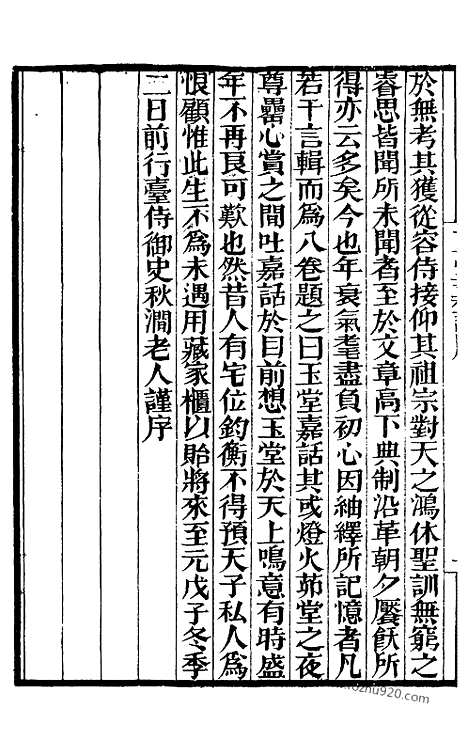 於無考其獲從容侍接仰其祖宗對天之鴻休聖訓無窮之
睿思皆聞所未聞者至於文章高下典制沿革朝夕饜飫所
得亦云多矣今也年衰氣耄盡負初心因紬繹所記憶者凡
若干言輯而爲八卷題之曰玉堂嘉話其或燈火茆堂之夜
尊罍心賞之間吐嘉話於目前想玉堂於天上鳴意有時盛
年不再良可歎也然昔人有宅位鈞衡不得預天子私人爲
恨顧惟此生不爲未遇用藏家櫃以貽將來至元戊子冬季
二日前行臺侍御史秋澗老人謹序